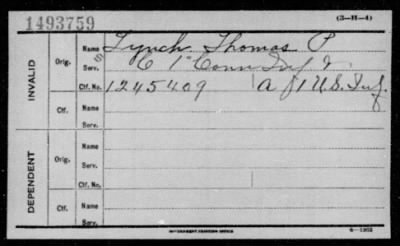 1493759
(3-H-4)
INVALID
Orig.
Name Lynch Thomas P
Serv. C 1" Conn Inf
Ctf. No. 1245409 A 1 U.S. Inf.
Ctf.
Name
Serv.
DEPENDENT
Orig.
Name
Serv.
Ctf. No.
Ctf.
Name
Serv.
GOVERNMENT PRINTING OFFICE